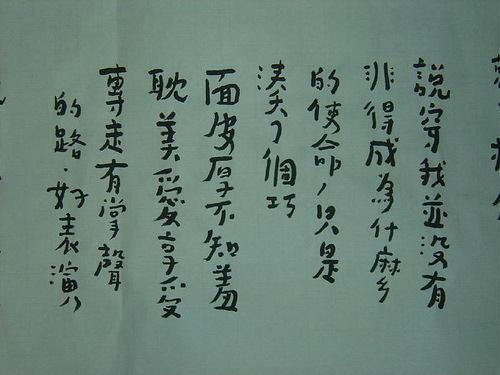 說穿我並沒有
非得成為什麼
的使命，只是
湊了個巧
面皮厚不知羞
耽美愛享受
專走有掌聲
的路．好表演